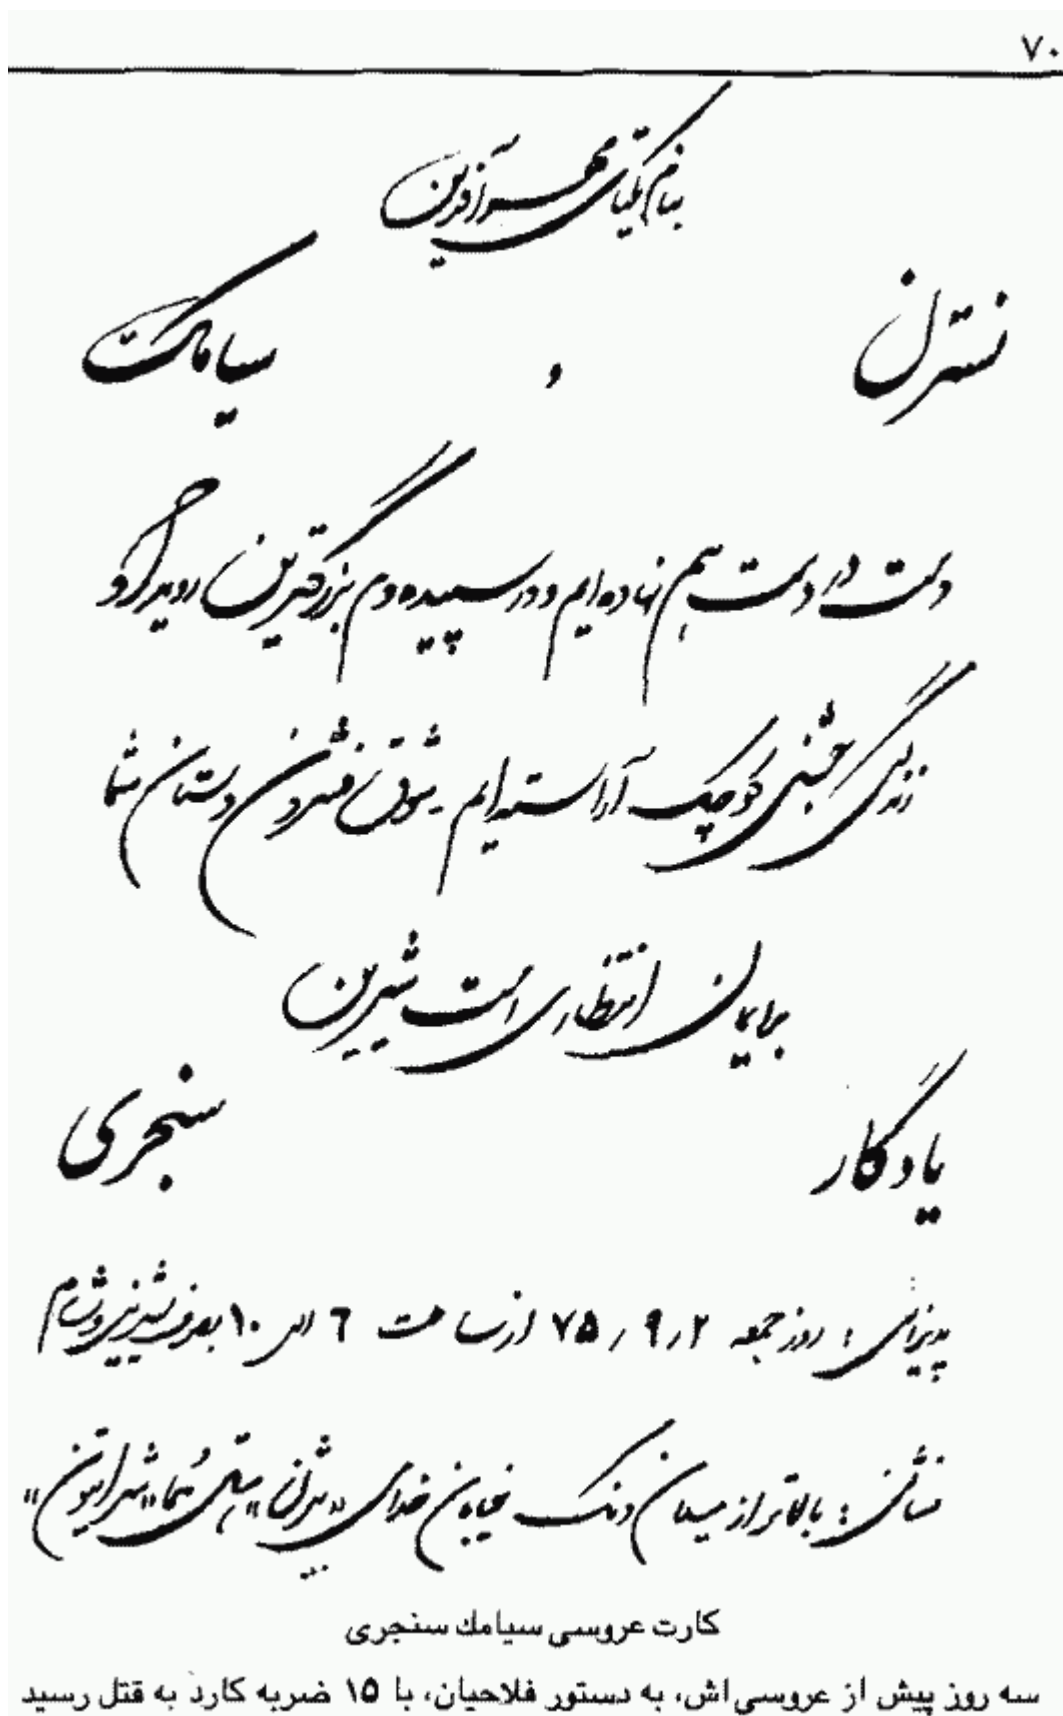 ۷۰
بنام یکتای مهرآفرین
نسترن و سیامک
دست در دست هم نهاده‌ایم و در سپیده دم بزرگترین رویداد
زندگی جشنی کوچک آراسته‌ایم شوق فشردن دستان شما
برایمان انتظاری است شیرین
یادگار سنجری
پذیرائی : روز جمعه ۷۵/۹/۲ از ساعت ۶ الی ۱۰ بصرف شیرینی و شام
نشانی : بالاتر از میدان ونک خیابان خدامی «بیژن» هتل هما «شهر
کارت عروسی سیامك سنجری
سه روز پیش از عروسی‌اش، به دستور فلاحیان، با ۱۵ ضربه کارد به قتل رسید